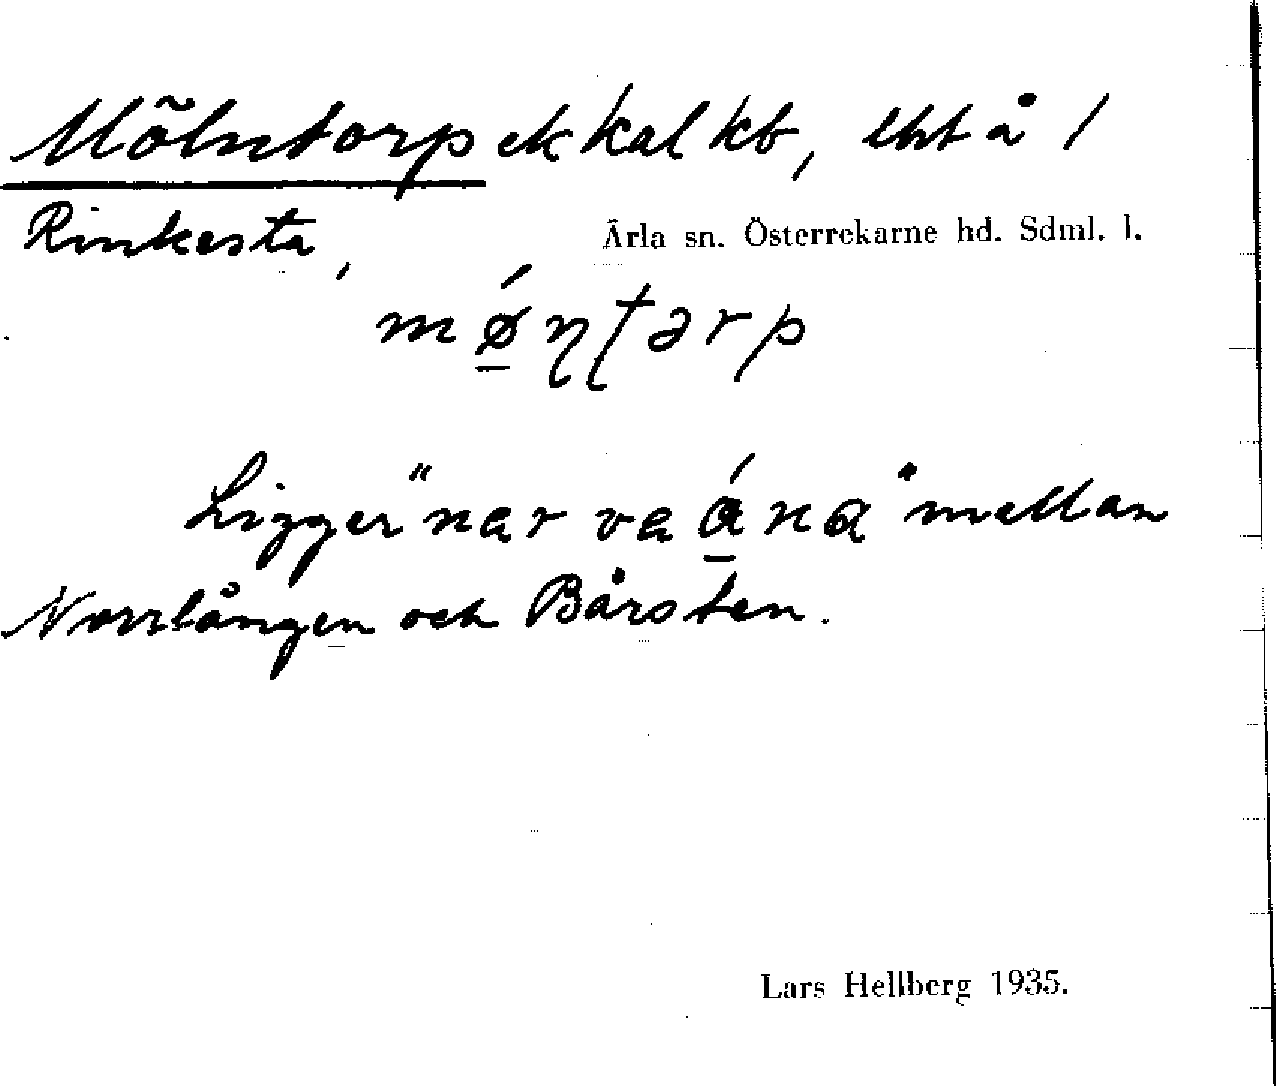 Mölntorp ek kal kb, lht å 1
Rinkesta,
Ärla sn. Österrekarne hd. Sdml. l.
mǿ̲ɳʈərp
Ligger "nar va á̲na" mellan
Norrlången och Bårsten.
Lars Hellberg 1935.